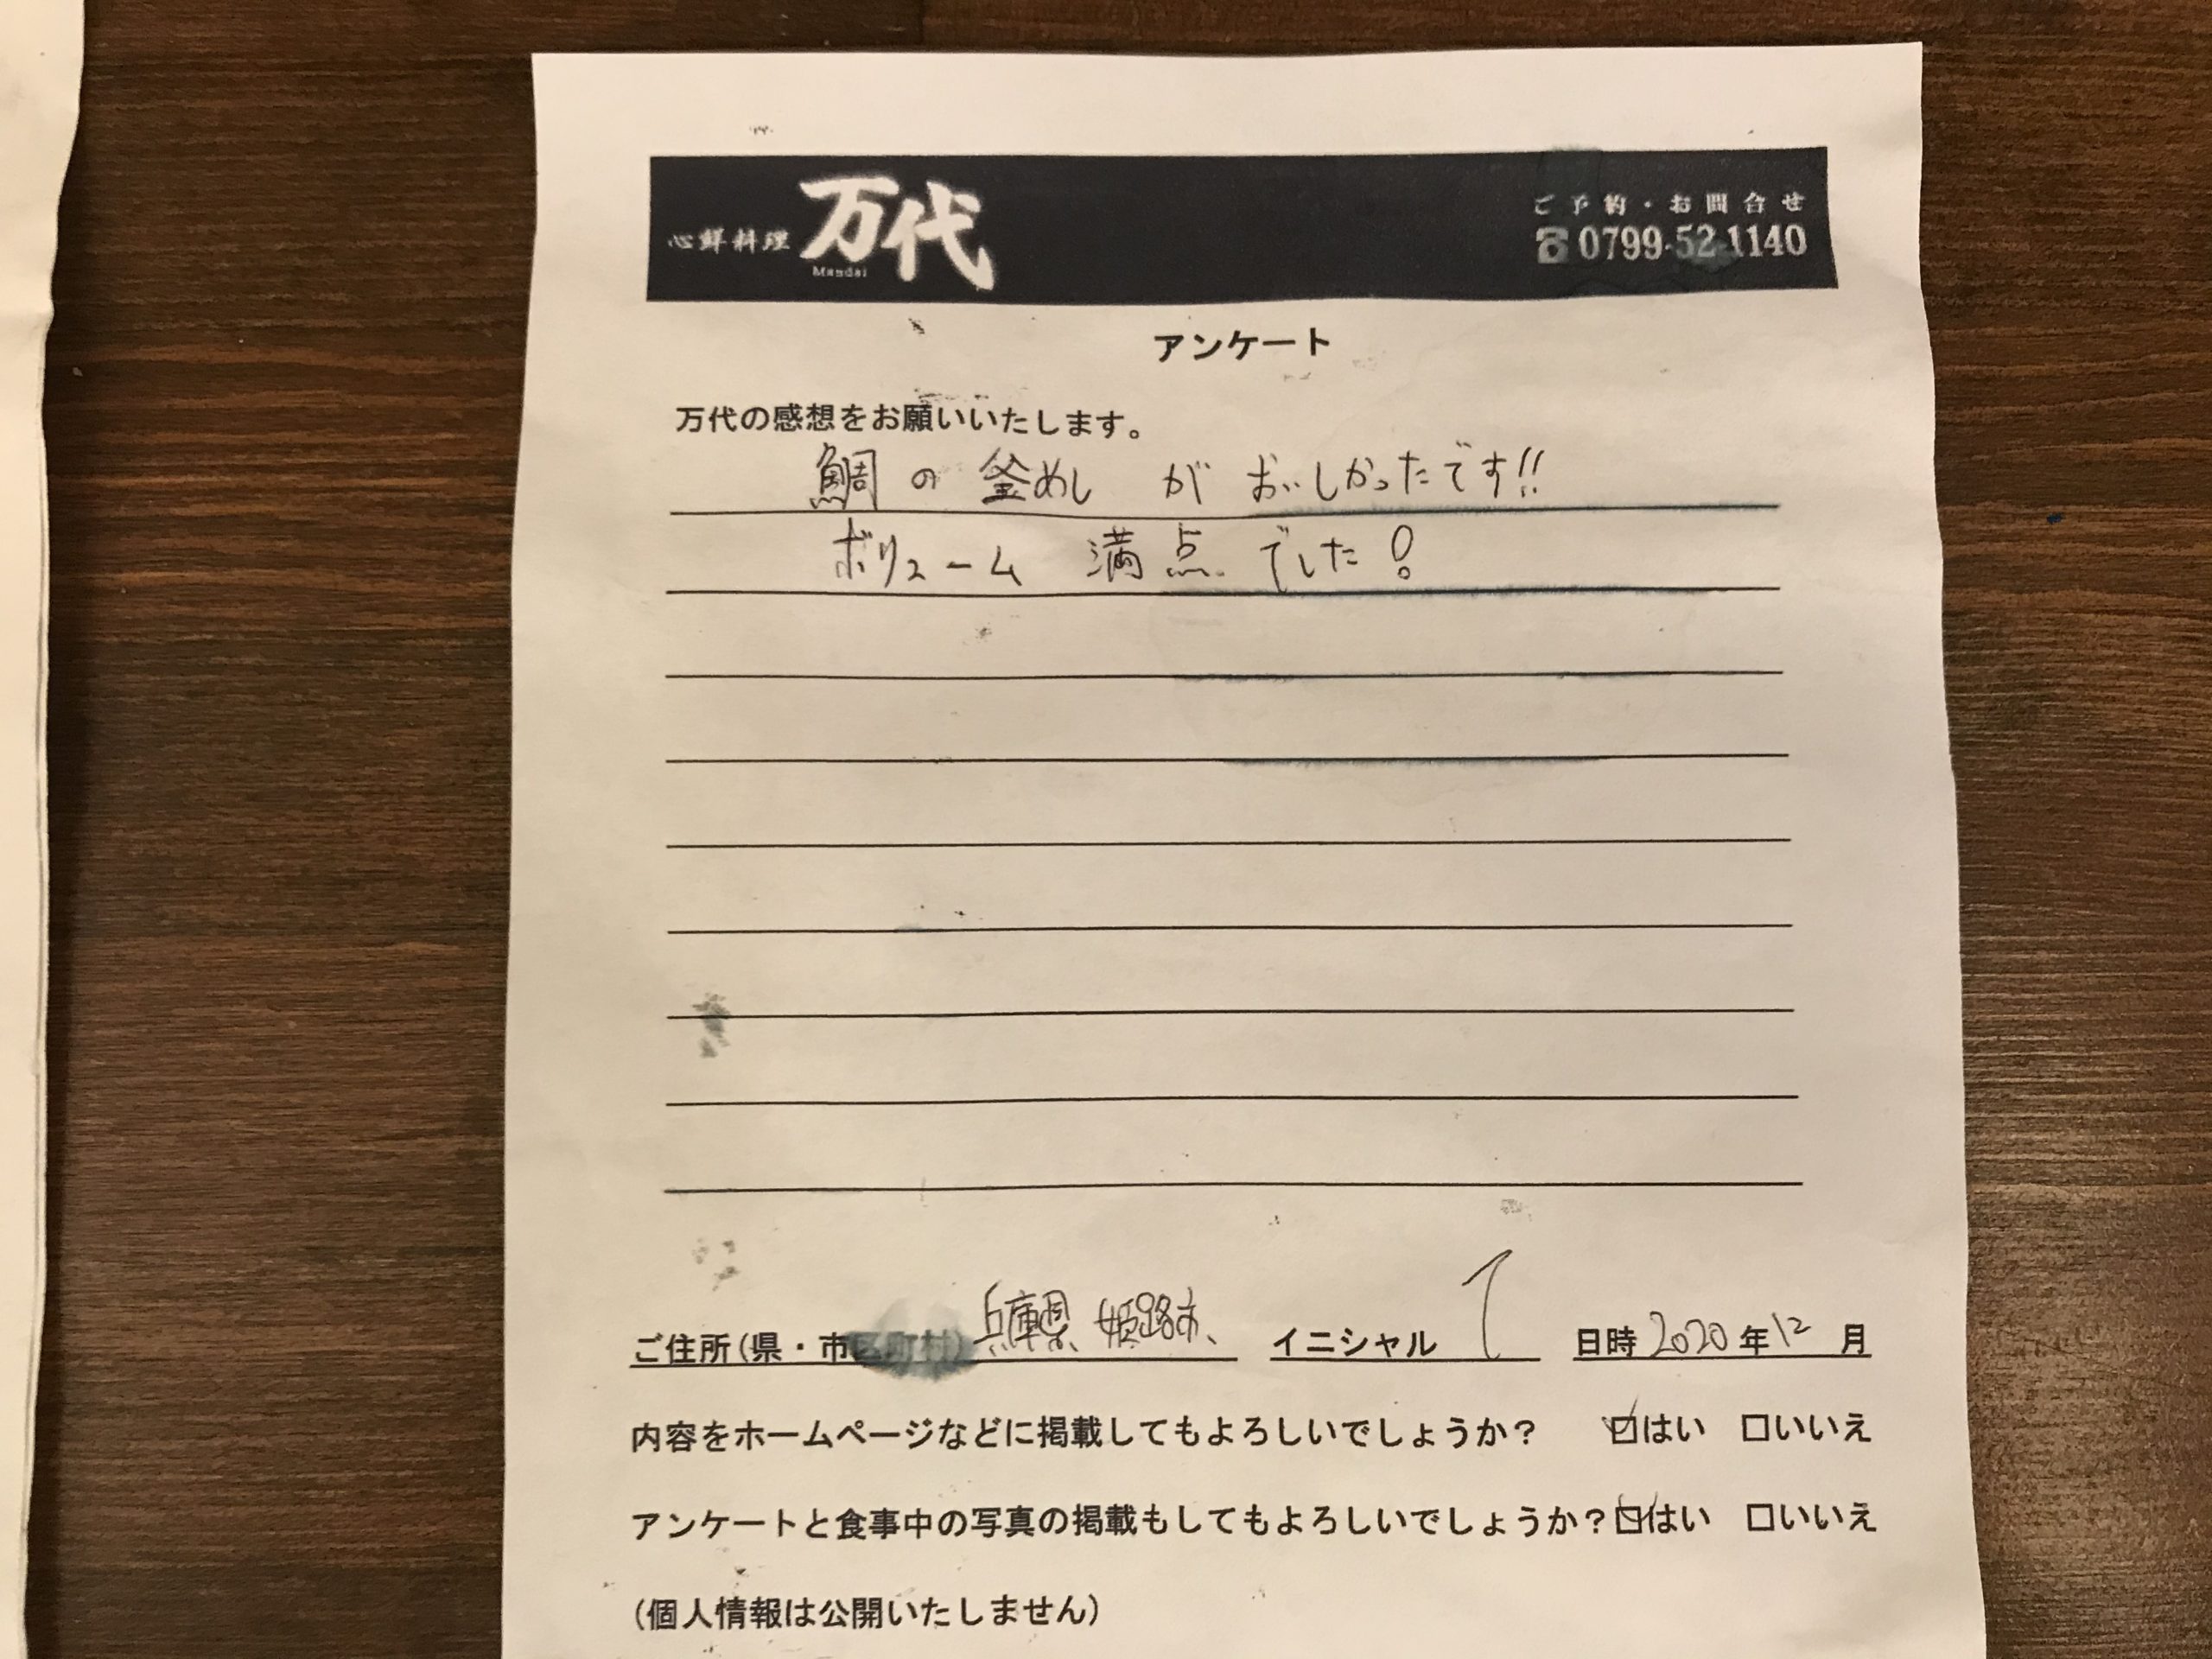 心鮮料理 万代
Mandai
ご予約・お問合せ
☎0799-52-1140
アンケート
万代の感想をお願いいたします。
鯛の釜めし が おいしかったです!!
ボリューム 満点 でした!
ご住所(県・市区町村) 兵庫県 姫路市 イニシャル T 日時 2020年12月
内容をホームページなどに掲載してもよろしいでしょうか? ☑はい □いいえ
アンケートと食事中の写真の掲載もしてもよろしいでしょうか?☑はい □いいえ
(個人情報は公開いたしません)